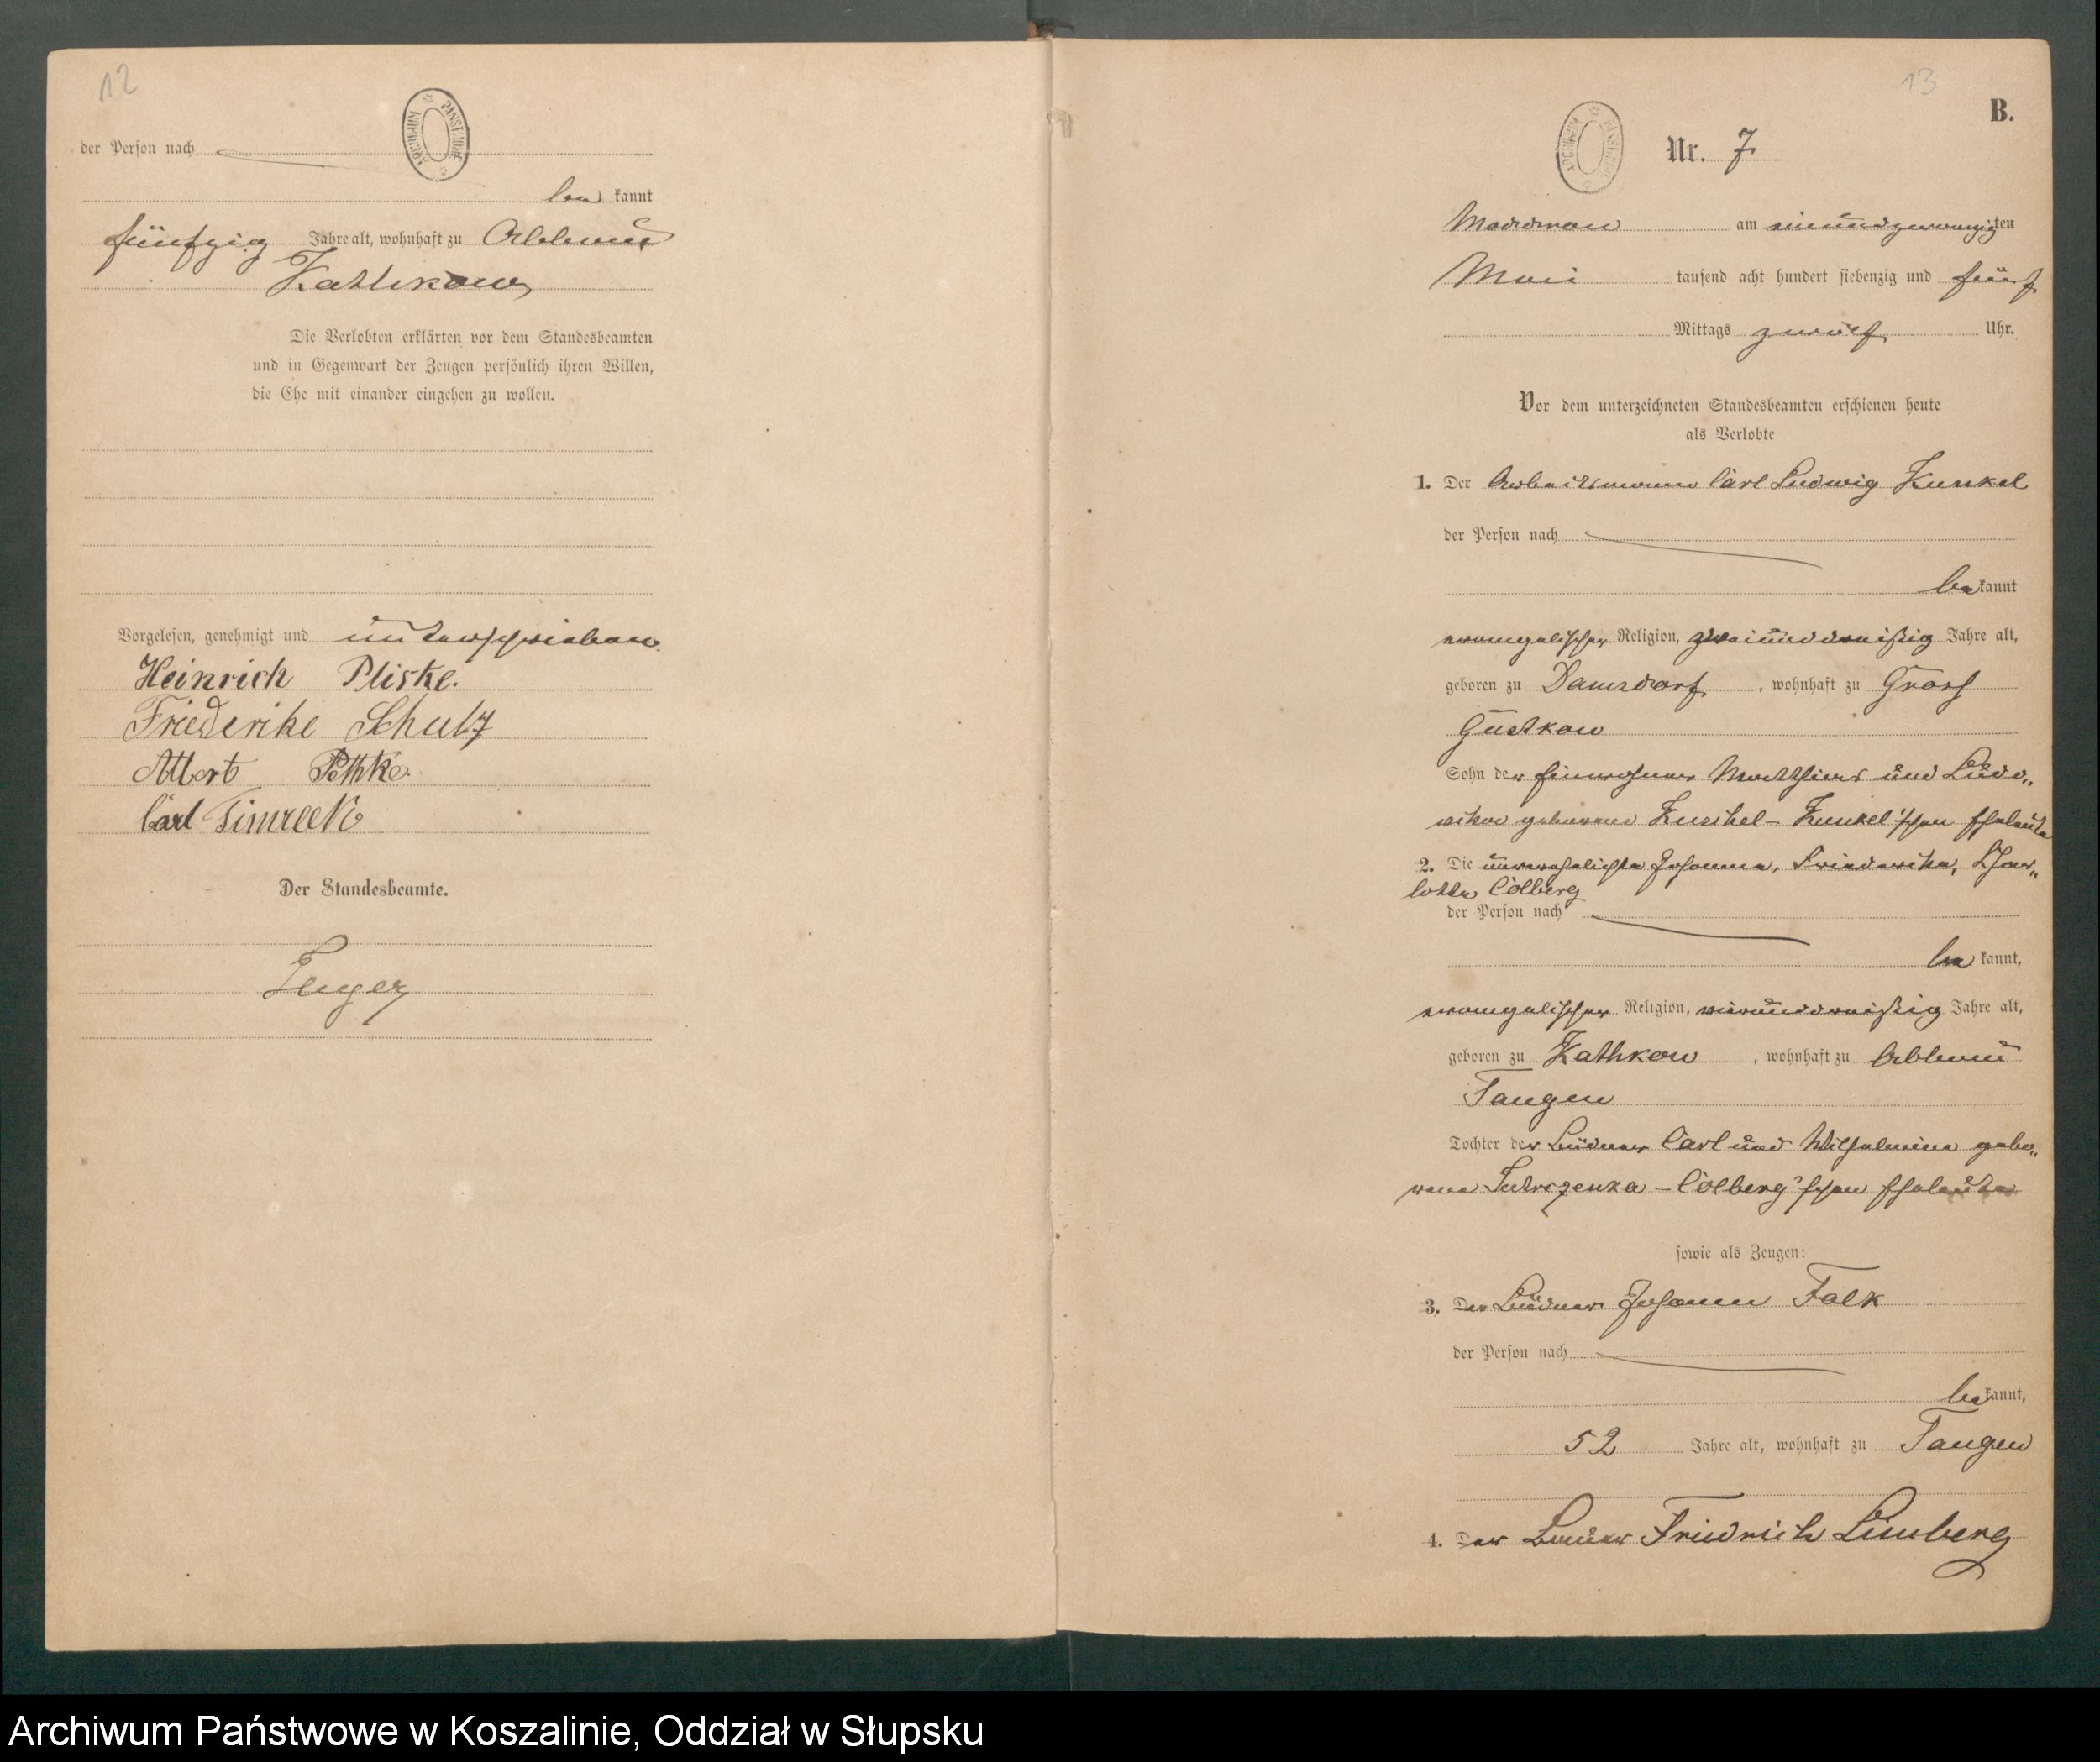 12
der Person nach
ARCHIWUM PAŃSTWOWE
be kannt
fünfzig Jahre alt, wohnhaft zu Abbau
Kathkow
Die Verlobten erklärten vor dem Standesbeamten
und in Gegenwart der Zeugen persönlich ihren Willen,
die Ehe mit einander eingehen zu wollen.
Vorgelesen, genehmigt und unterschrieben
Heinrich Pliske.
Friederike Schulz
Albert Pethke
Carl
Der Standesbeamte.
13
B.
Nr. 7
am einundzwanzigten
Mai tausend acht hundert siebenzig und fünf
Mittags zwölf Uhr.
Vor dem unterzeichneten Standesbeamten erschienen heute
als Verlobte
1. Der Arbeitsmann Carl Ludwig Kunkel
der Person nach
be kannt
evangelischer Religion, zweiunddreißig Jahre alt,
geboren zu Damsdorf, wohnhaft zu Gross
Gustkow
Sohn der Einwohner Matthias und Ludo„
wike geborene Kuschel – Kunkel'schen Eheleute
2. Die unverehelichte Johanna, Friederike, Char„
lotte Colberg
der Person nach
be kannt,
evangelischer Religion, vierunddreißig Jahre alt,
geboren zu Kathkow, wohnhaft zu Abbau
Tangen
Tochter der Büdner Carl und Wilhelmine gebo„
rene – Colberg'schen Eheleute
sowie als Zeugen:
3. Der Büdner Johann Falk
der Person nach
be kannt,
52 Jahre alt, wohnhaft zu Tangen
4. Der Bauer Friedrich Limberg
Archiwum Państwowe w Koszalinie, Oddział w Słupsku